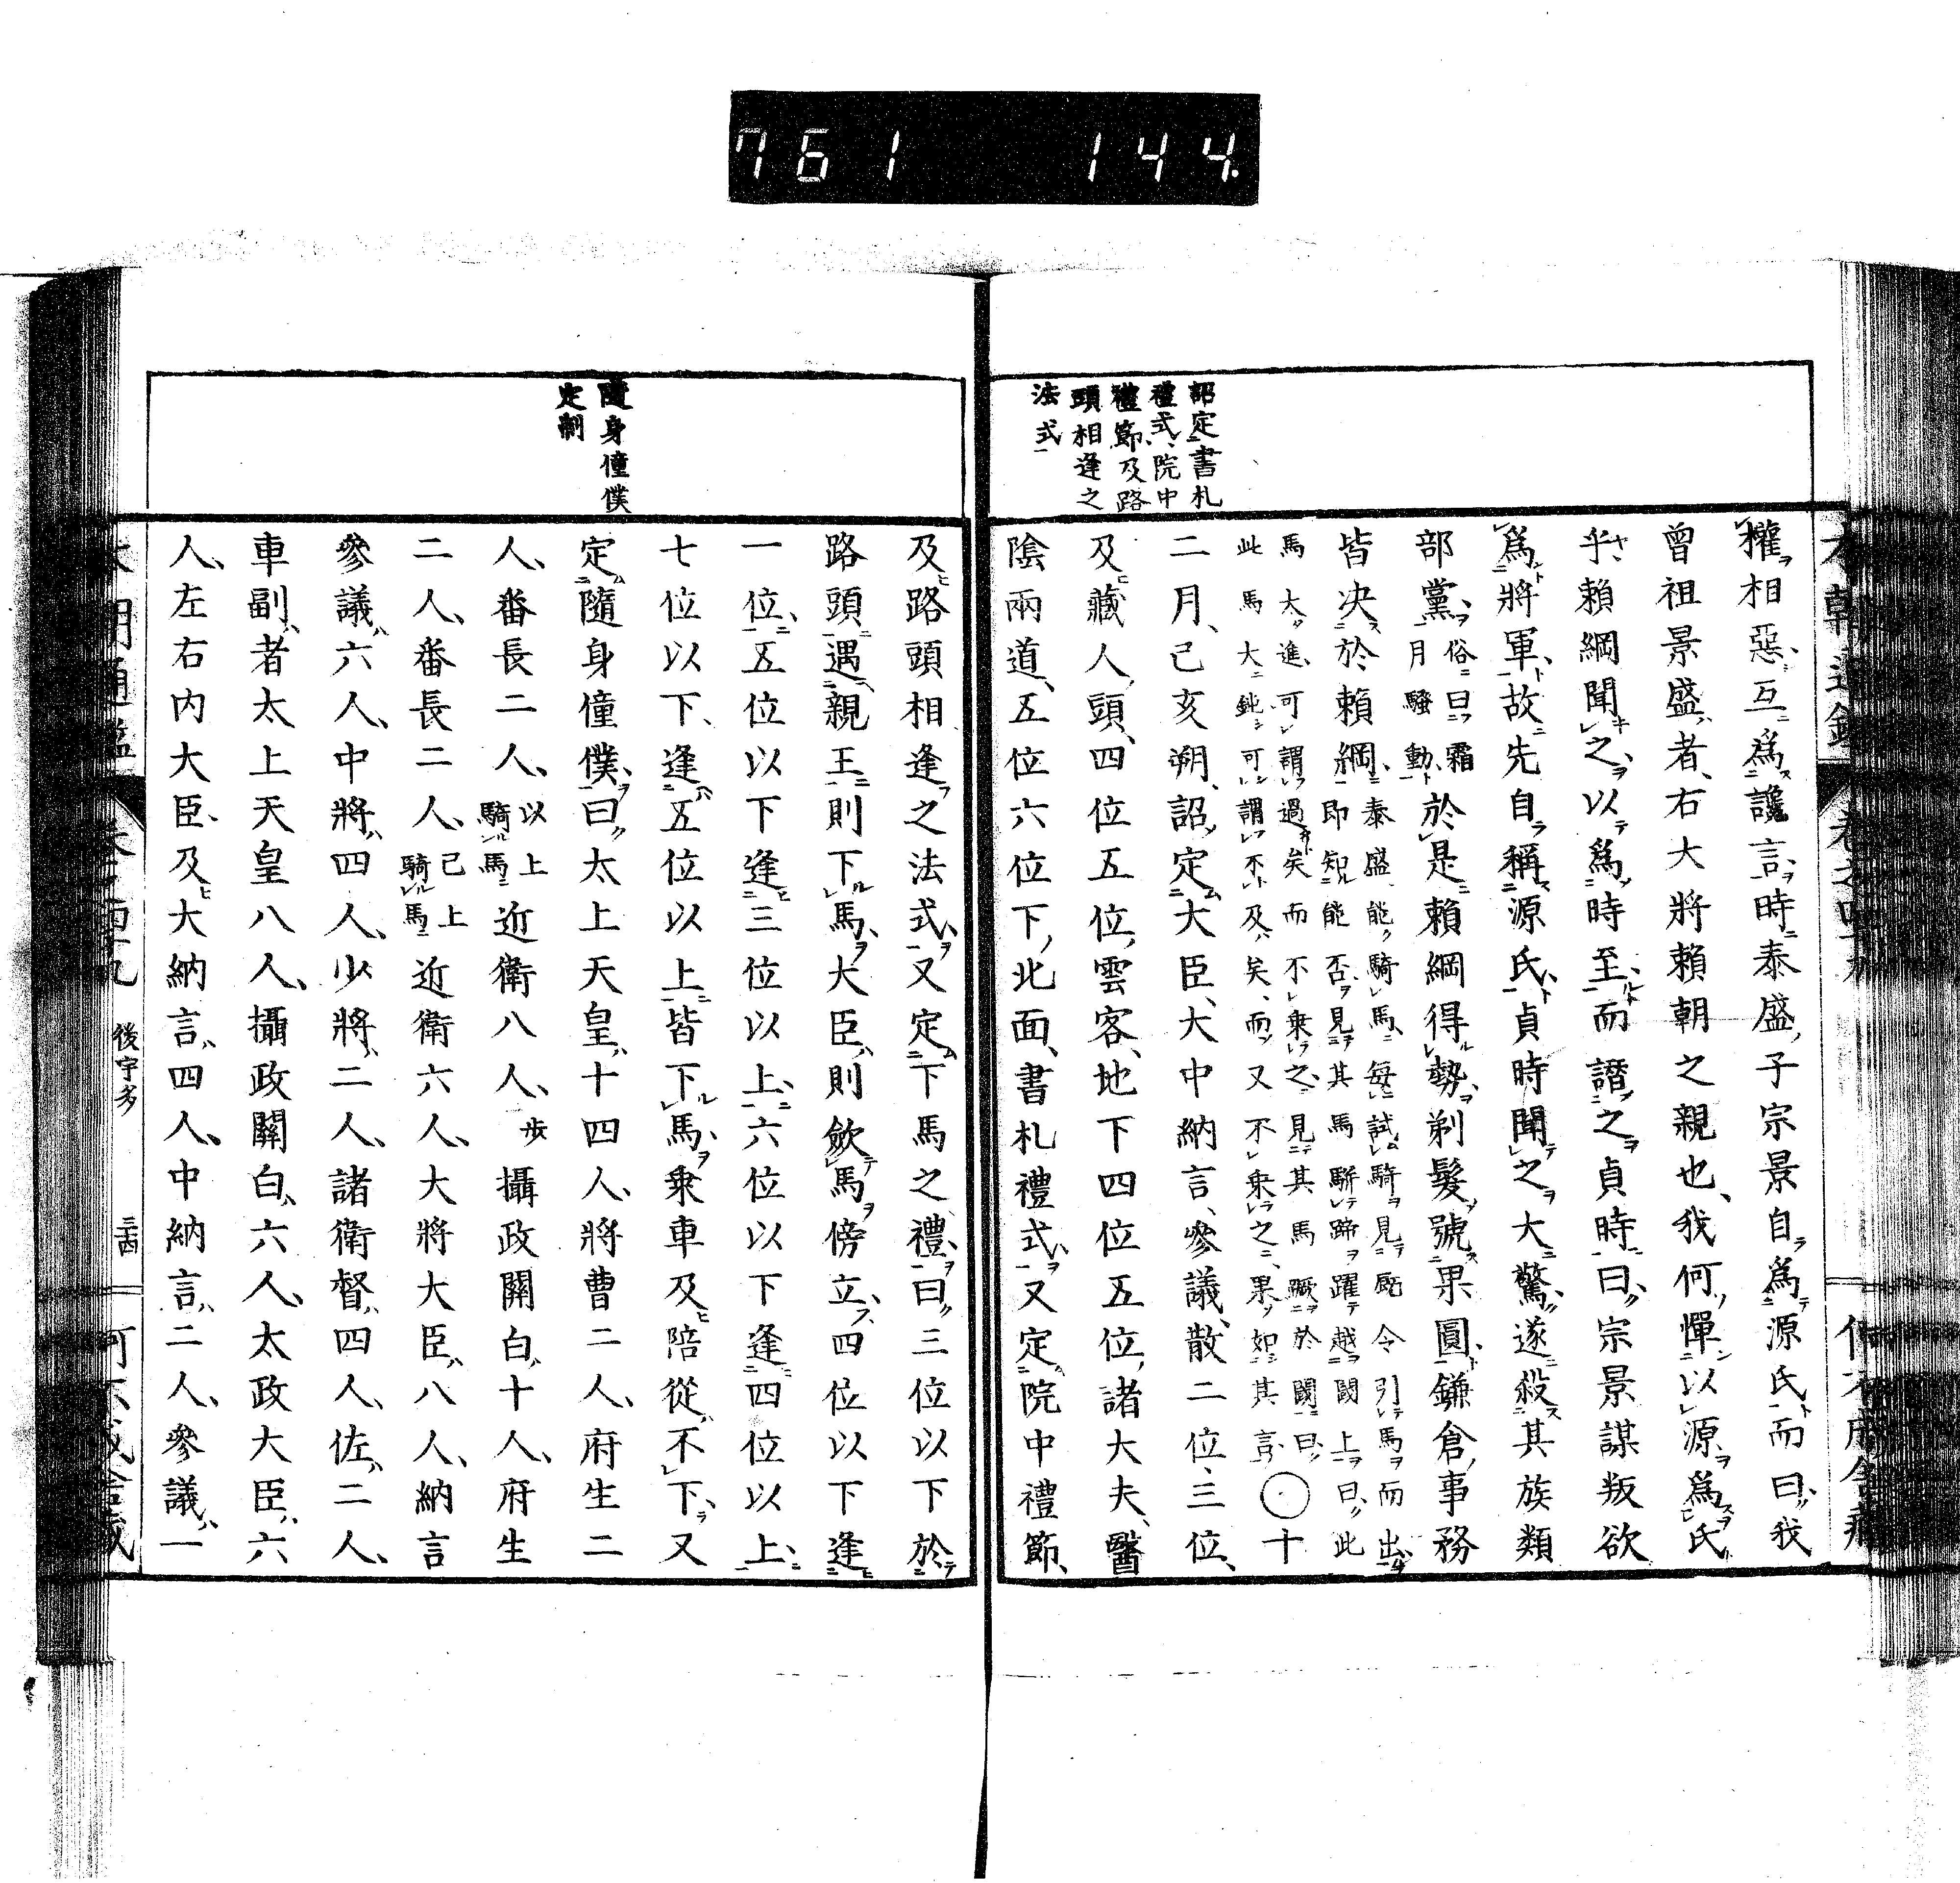 761 144.
詔定書札
禮式、院中
禮節、及路
頭相逢之
法式
權相惡、互爲讒言、時泰盛子宗景自爲源氏而曰、我
曾祖景盛者、右大將賴朝之親也、我何憚以源爲氏
乎、賴綱聞之、以爲時至而譖之貞時曰、宗景謀叛欲
爲將軍、故先自稱源氏、貞時聞之大驚、遂殺其族類
部黨、俗曰霜
月騷動、於是賴綱得勢、剃髮號果圓、鎌倉事務
皆決於賴綱、泰盛能騎馬、每試騎見廐令引馬而出
即知能否、見其馬騈蹄躍越閾上曰、此
馬大進、可謂過矣、而不乘之、見其馬蹶於閾曰、
此馬大鈍、可謂不及矣、而又不乘之、果如其言、〇十
二月、己亥朔、詔定大臣、大中納言、參議、散二位、三位、
及藏人頭、四位五位、雲客、地下四位五位、諸大夫、醫
陰兩道、五位六位下、北面、書札禮式、又定院中禮節、
及路頭相逢之法式、又定下馬之禮曰、三位以下於
路頭遇親王則下馬、大臣則歛馬傍立、四位以下逢
一位、五位以下逢三位以上、六位以下逢四位以上、
七位以下、逢五位以上皆下馬、乘車及陪從不下、又
隨身僮僕
定制
定隨身僮僕曰、太上天皇十四人、將曹二人、府生二
人、番長二人、以上
騎馬近衛八人、步攝政關白十人、府生
二人、番長二人、已上
騎馬近衛六人、大將大臣八人、納言
參議六人、中將四人、少將二人、諸衛督四人、佐二人、
車副者太上天皇八人、攝政關白六人、太政大臣六
人、左右内大臣、及大納言四人、中納言二人、參議一
後宇多
三四